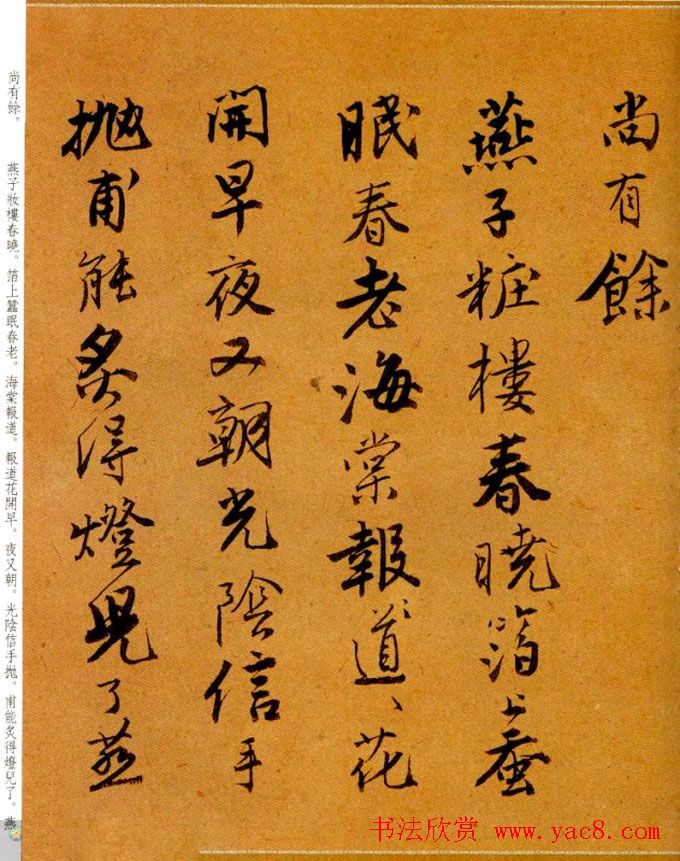 尚有餘
燕子粧樓春曉箔上蚕
眠春老海棠報道〻花
開早夜又朝光陰信手
抛甫能炙得燈兒了燕
尚有餘。 燕子妝樓春曉。箔上蠶眠春老。海棠報道。報道花開早。夜又朝。光陰信手抛。甫能炙得燈兒了。燕
书法欣赏 www.yac8.com